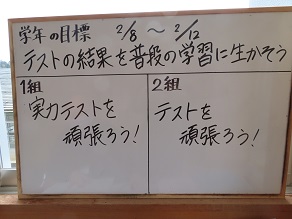 学年の目標 2/8 〜 2/12
テストの結果を普段の学習に生かそう
1組
実力テストを
頑張ろう!
2組
テストを
頑張ろう!